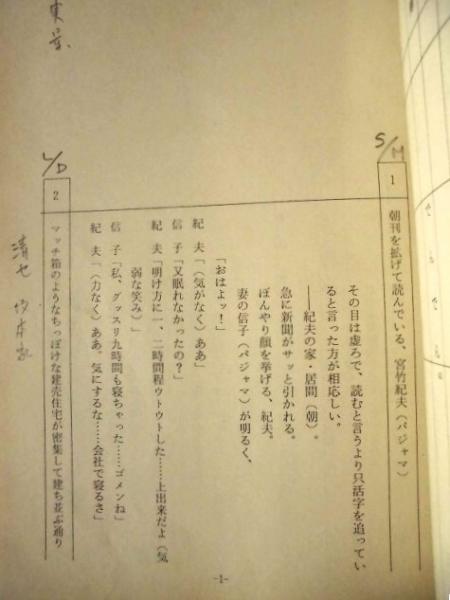 S/M
1
朝刊を拡げて読んでいる、宮竹紀夫(パジャマ)
その目は虚ろで、読むと言うより只活字を追ってい
ると言った方が相応しい。
――紀夫の家・居間(朝)。
急に新聞がサッと引かれる。
ぼんやり顔を挙げる、紀夫。
妻の信子(パジャマ)が明るく、
「おはよッ!」
紀 夫「(気がなく)ああ」
信 子「又眠れなかったの?」
紀 夫「明け方に一、二時間程ウトウトした……上出来だよ(気
弱な笑み)」
信 子「私、グッスリ九時間も寝ちゃった……ゴメンね」
紀 夫「(力なく)ああ。気にするな……会社で寝るさ」
L/D
2
マッチ箱のようなちっぽけな建売住宅が密集して建ち並ぶ通り
-1-